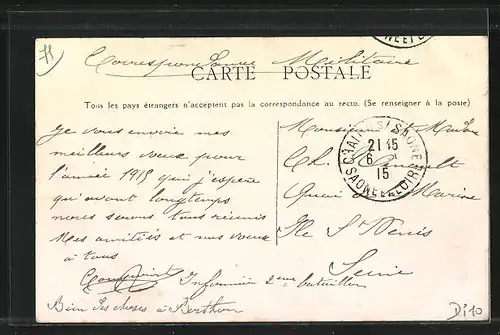 Correspondance Militaire
CARTE POSTALE
Tous les pays étrangers n'acceptent pas la correspondance au recto. (Se renseigner à la poste)
Je vous envoie mes
meilleurs vœux pour
l'année 1915 qui j'espère
qu'avant longtemps
nous serons tous réunis
Mes amitiés et nos vœux
à tous
Infirmier 2ème bataillon
Bien des choses à Berthon
Monsieur
Ch.
Quai Marine
Ile St Denis
Seine
21 15
6
15
SAONE-ET-LOIRE
Di10